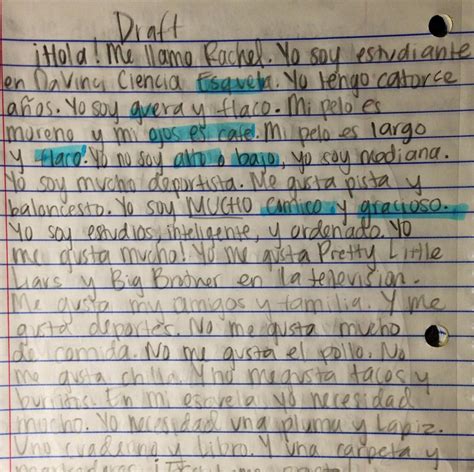 Draft
¡Hola! Me llamo Rachel. Yo soy estudiante
en DaVinci Ciencia Escuela. Yo tengo catorce
años. Yo soy guera y flaco. Mi pelo es
moreno y mi ojos es cafe. Mi pelo es largo
y flaco. Yo no soy alto o bajo, yo soy madiana.
Yo soy mucho deportista. Me gusta pista y
baloncesto. Yo soy MUCHO comico y gracioso.
Yo soy estudios, inteligente, y ordenado. Yo
me gusta mucho! Yo me gusta Pretty Little
Liars y Big Brother en la television.
Me gusta my amigos y familia. Y me
gusta deportes. No me gusta mucho
de comida. No me gusta el pollo. No
me gusta chilla. Y no me gusta tacos y
burritos. En mi escuela yo necesidad
mucho. Yo necesidad una pluma y lapiz.
Uno cuaderno y libro. Y una carpeta y